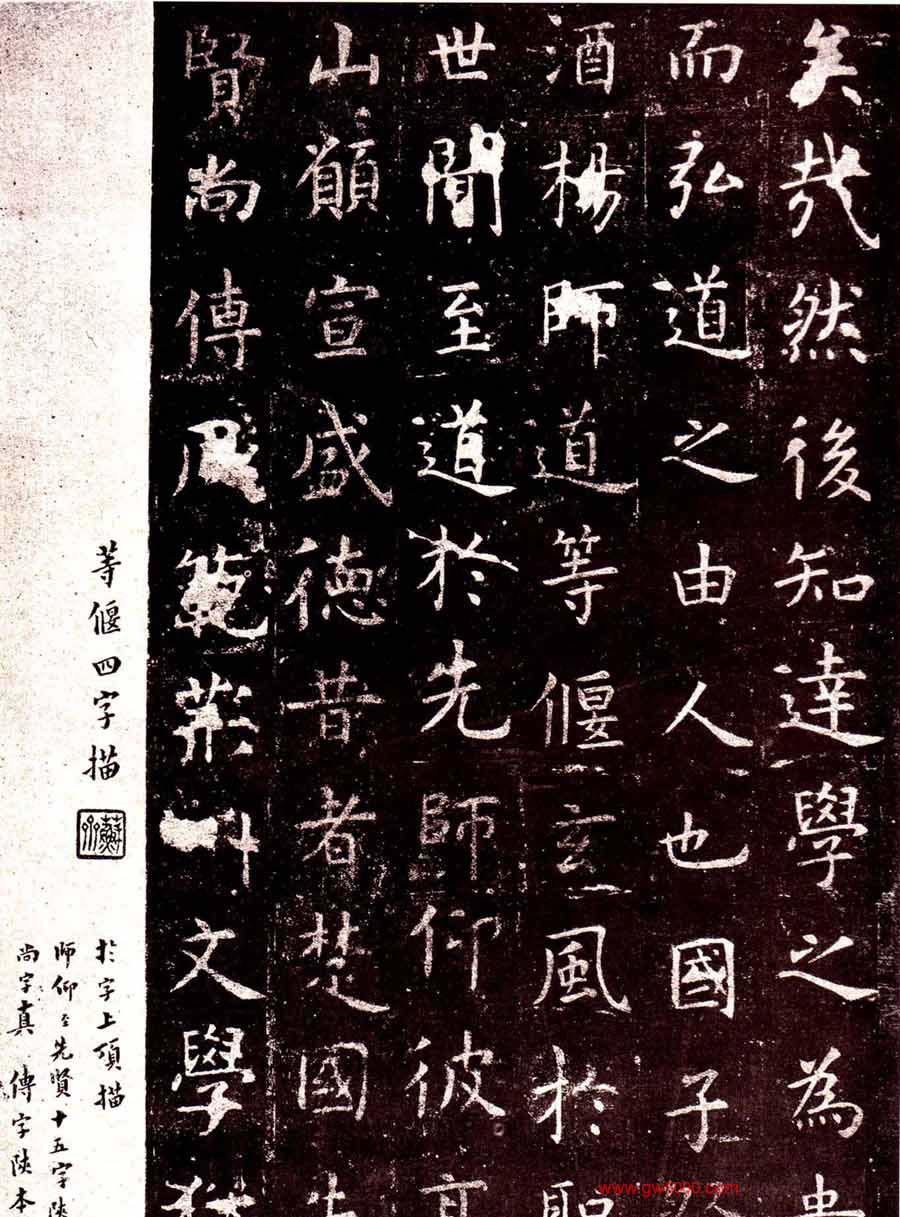 矣哉然後知達學之為
而弘道之由人也國子
酒楊師道等偃玄風於
世闡至道於先師仰彼
山願宣盛德昔者楚國
賢尚傳風範荊州文學
等偃四字描
於字上頂描
師仰至先賢十五字陝
尚字真 傳字陝本
www.gwf090.com